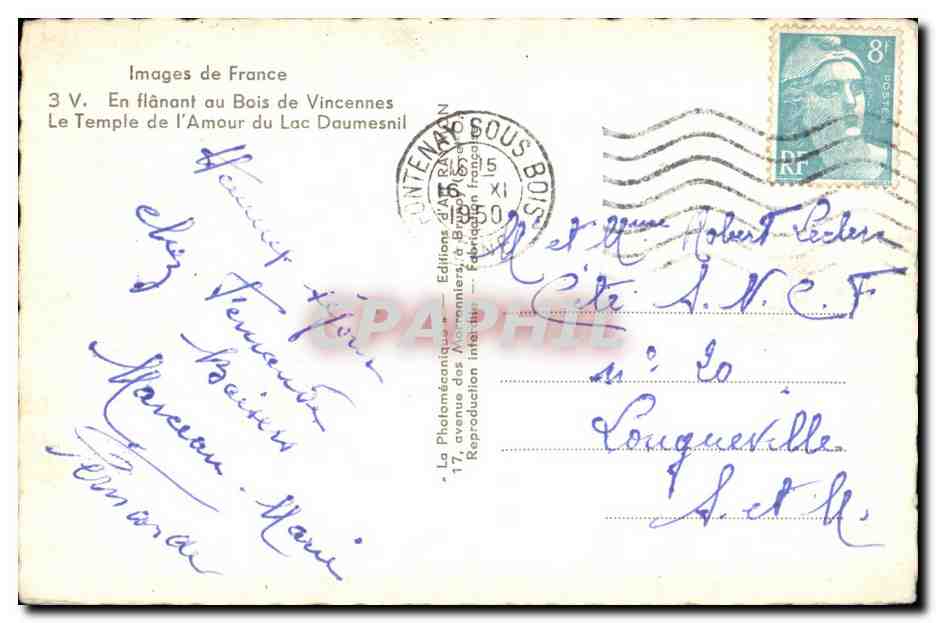 Images de France
3 V. En flânant au Bois de Vincennes
Le Temple de l'Amour du Lac Daumesnil
séjour
chez Fernande
Baisers
Marceau - Marie
Fernande
"La Photomécanique" - Editions d'Art
17, avenue des Marronniers, à
Reproduction interdite - Fabrication française
FONTENAY SOUS BOIS
16 15
16 XI
1950
8F
POSTES
RF
Mr et Mme Robert Leclerc
Cité S.N.C.F
n° 20
Longueville
S. et M.
CPAPHIL